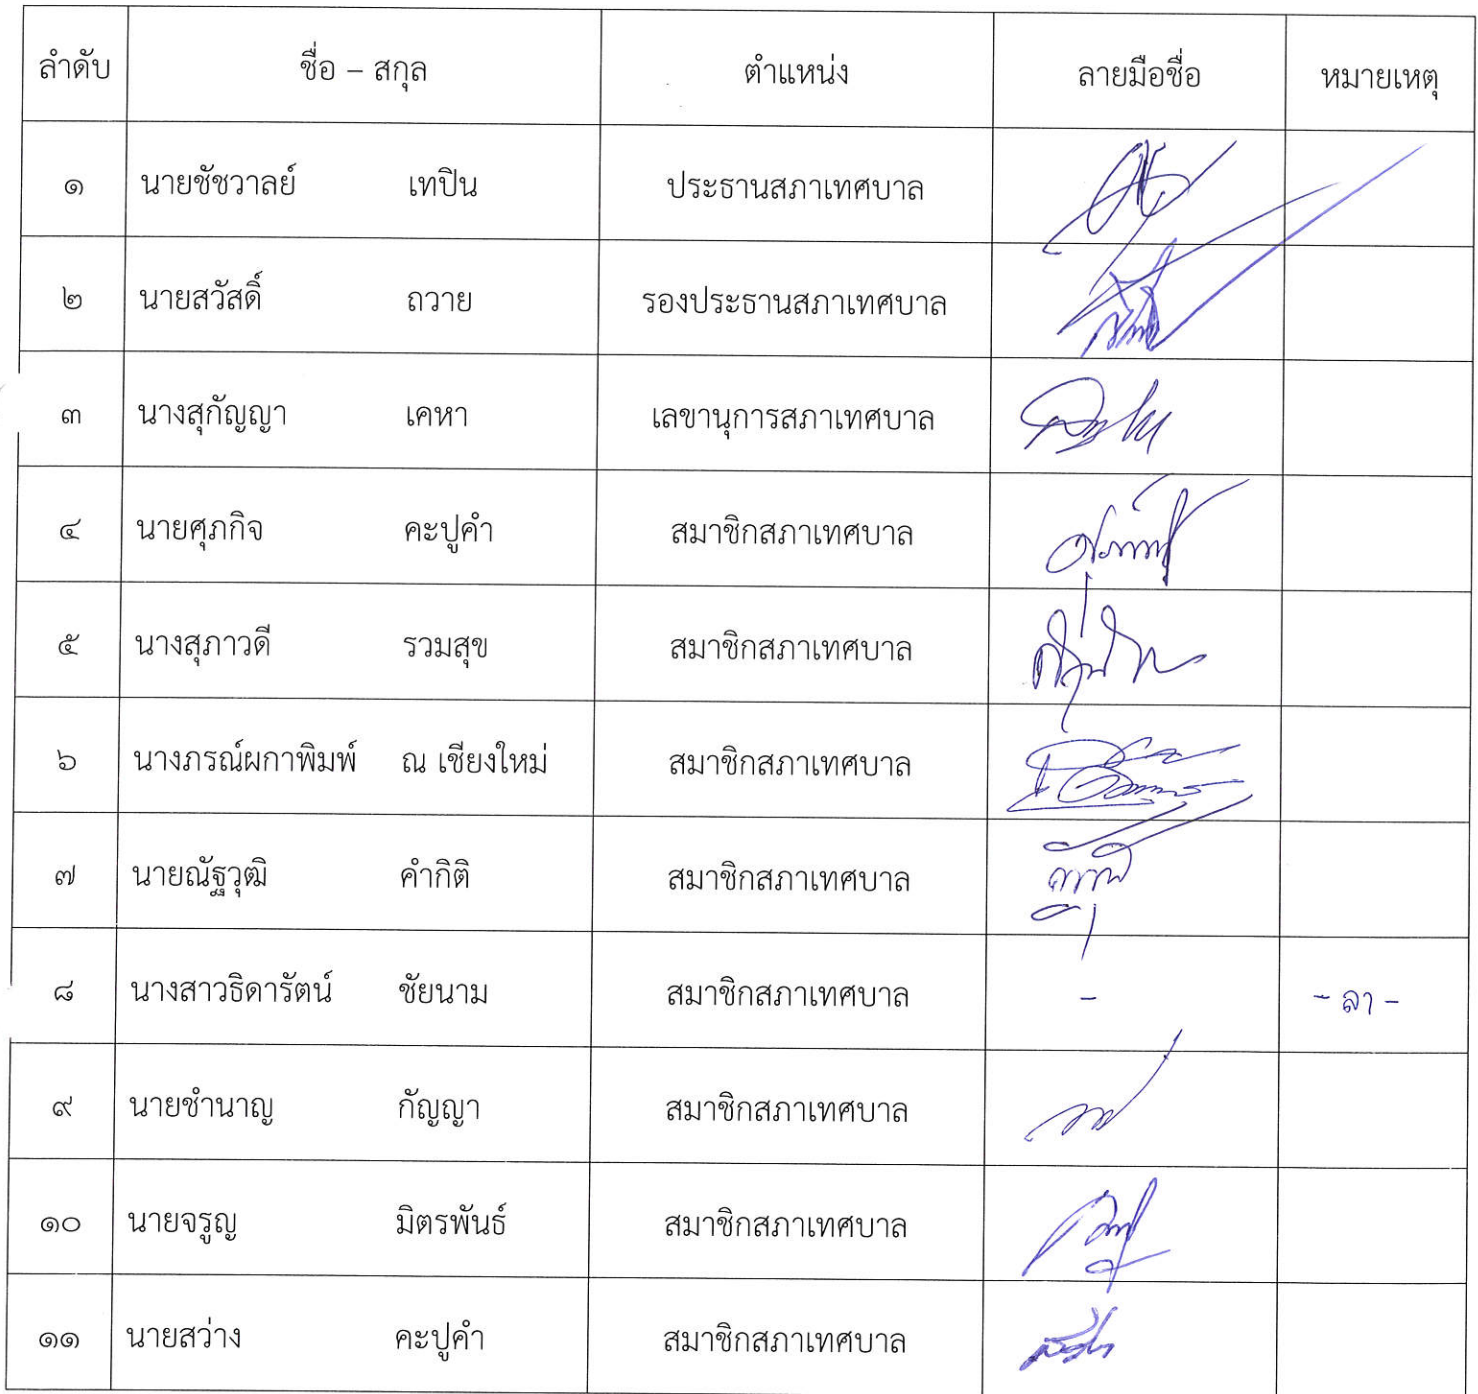 ลำดับ ชื่อ – สกุล ตำแหน่ง ลายมือชื่อ หมายเหตุ
๑ นายชัชวาลย์ เทปิน ประธานสภาเทศบาล
๒ นายสวัสดิ์ ถวาย รองประธานสภาเทศบาล
๓ นางสุกัญญา เคหา เลขานุการสภาเทศบาล
๔ นายศุภกิจ คะปูคำ สมาชิกสภาเทศบาล
๕ นางสุภาวดี รวมสุข สมาชิกสภาเทศบาล
๖ นางภรณ์ผกาพิมพ์ ณ เชียงใหม่ สมาชิกสภาเทศบาล
๗ นายณัฐวุฒิ คำกิติ สมาชิกสภาเทศบาล
๘ นางสาวธิดารัตน์ ชัยนาม สมาชิกสภาเทศบาล - - ลา -
๙ นายชำนาญ กัญญา สมาชิกสภาเทศบาล
๑๐ นายจรูญ มิตรพันธ์ สมาชิกสภาเทศบาล
๑๑ นายสว่าง คะปูคำ สมาชิกสภาเทศบาล